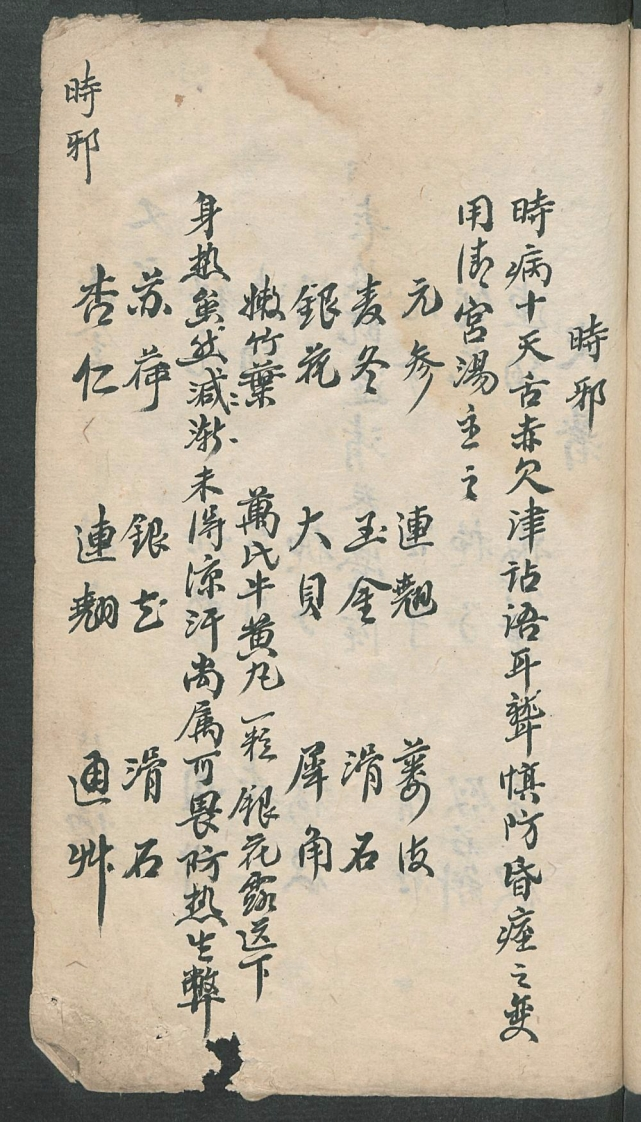 時邪
時病十天舌赤欠津詀语耳聋慎防昏痙之变
用清宮湯主之
元参　連翹　蒌皮
麦冬　玉金　滑石
銀花　大貝　犀角
嫩竹葉　萬氏牛黄丸一粒銀花露送下
身热虽然减漸未得凉汗尚属可畏防热生弊
苏荷　銀花　滑石
杏仁　連翹　通艸
時邪